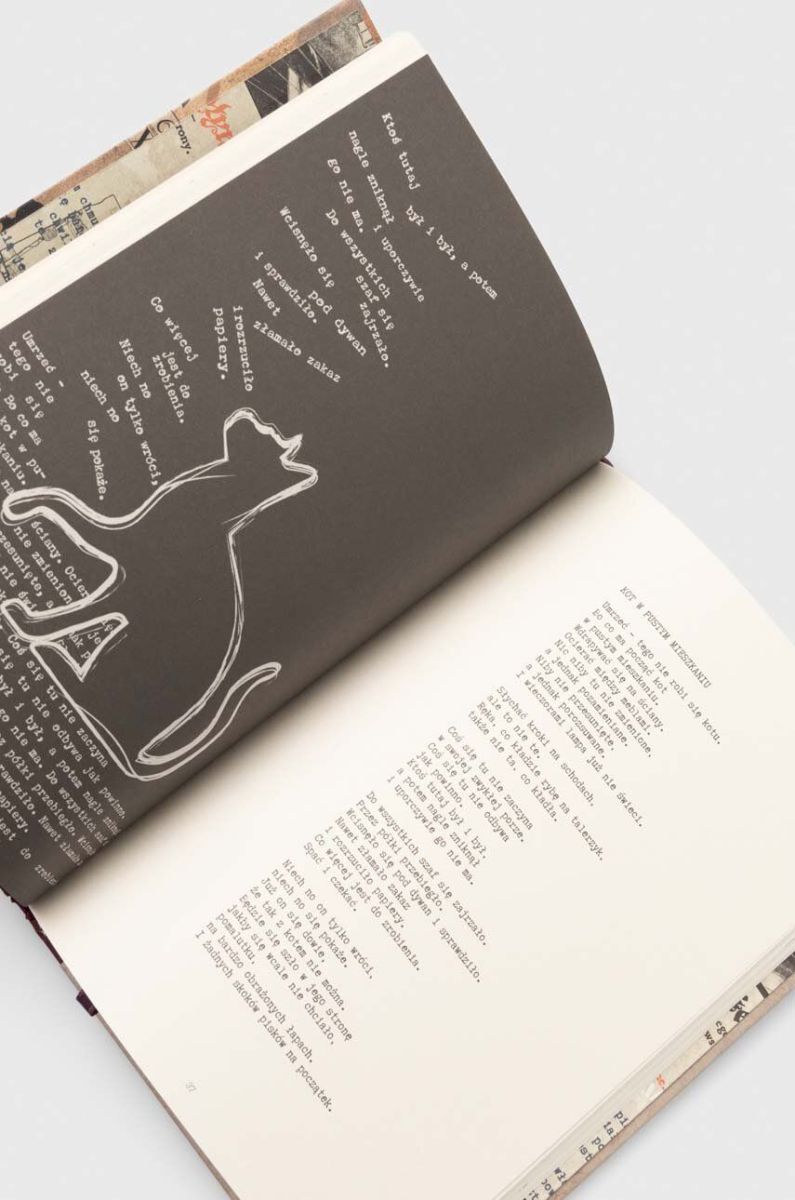 Ktoś tutaj był i był, a potem
nagle zniknął i uporczywie
go nie ma.
Do wszystkich
szaf się
zajrzało.
Wcisnęło się
pod dywan
i sprawdziło.
Nawet
złamało zakaz
i rozrzuciło
papiery.
Co więcej
jest do
zrobienia.
Niech no
on tylko wróci,
niech no
się pokaże.
Umrzeć -
tego nie
robi się
Bo co ma
kot w pu-
ściany.
nie zmienion
tu nie zaczyna
się tu nie odbywa jak powinno.
był i był, a potem nagle
go nie ma. Do wszystkich
półki przebiegło.
Nawet
papiery.
jest do
KOT W PUSTYM MIESZKANIU
Umrzeć - tego nie robi się kotu.
Bo co ma począć kot
w pustym mieszkaniu.
Wdrapywać się na ściany.
Ocierać między meblami.
Nic niby tu nie zmienione,
a jednak pozamieniane.
Niby nie przesunięte,
a jednak porozsuwane.
I wieczorami lampa już nie świeci.
Słychać kroki na schodach,
ale to nie te.
Ręka, co kładzie rybę na talerzyk,
także nie ta, co kładła.
Coś się tu nie zaczyna
w swojej zwykłej porze.
Coś się tu nie odbywa
jak powinno.
Ktoś tutaj był i był,
a potem nagle zniknął
i uporczywie go nie ma.
Do wszystkich szaf się zajrzało.
Przez półki przebiegło.
Wcisnęło się pod dywan i sprawdziło.
Nawet złamało zakaz
i rozrzuciło papiery.
Co więcej jest do zrobienia.
Spać i czekać.
Niech no on tylko wróci,
niech no się pokaże.
Już on się dowie,
że tak z kotem nie można.
Będzie się szło w jego stronę
jakby się wcale nie chciało,
pomalutku,
na bardzo obrażonych łapach.
I żadnych skoków pisków na początek.
37
rony.